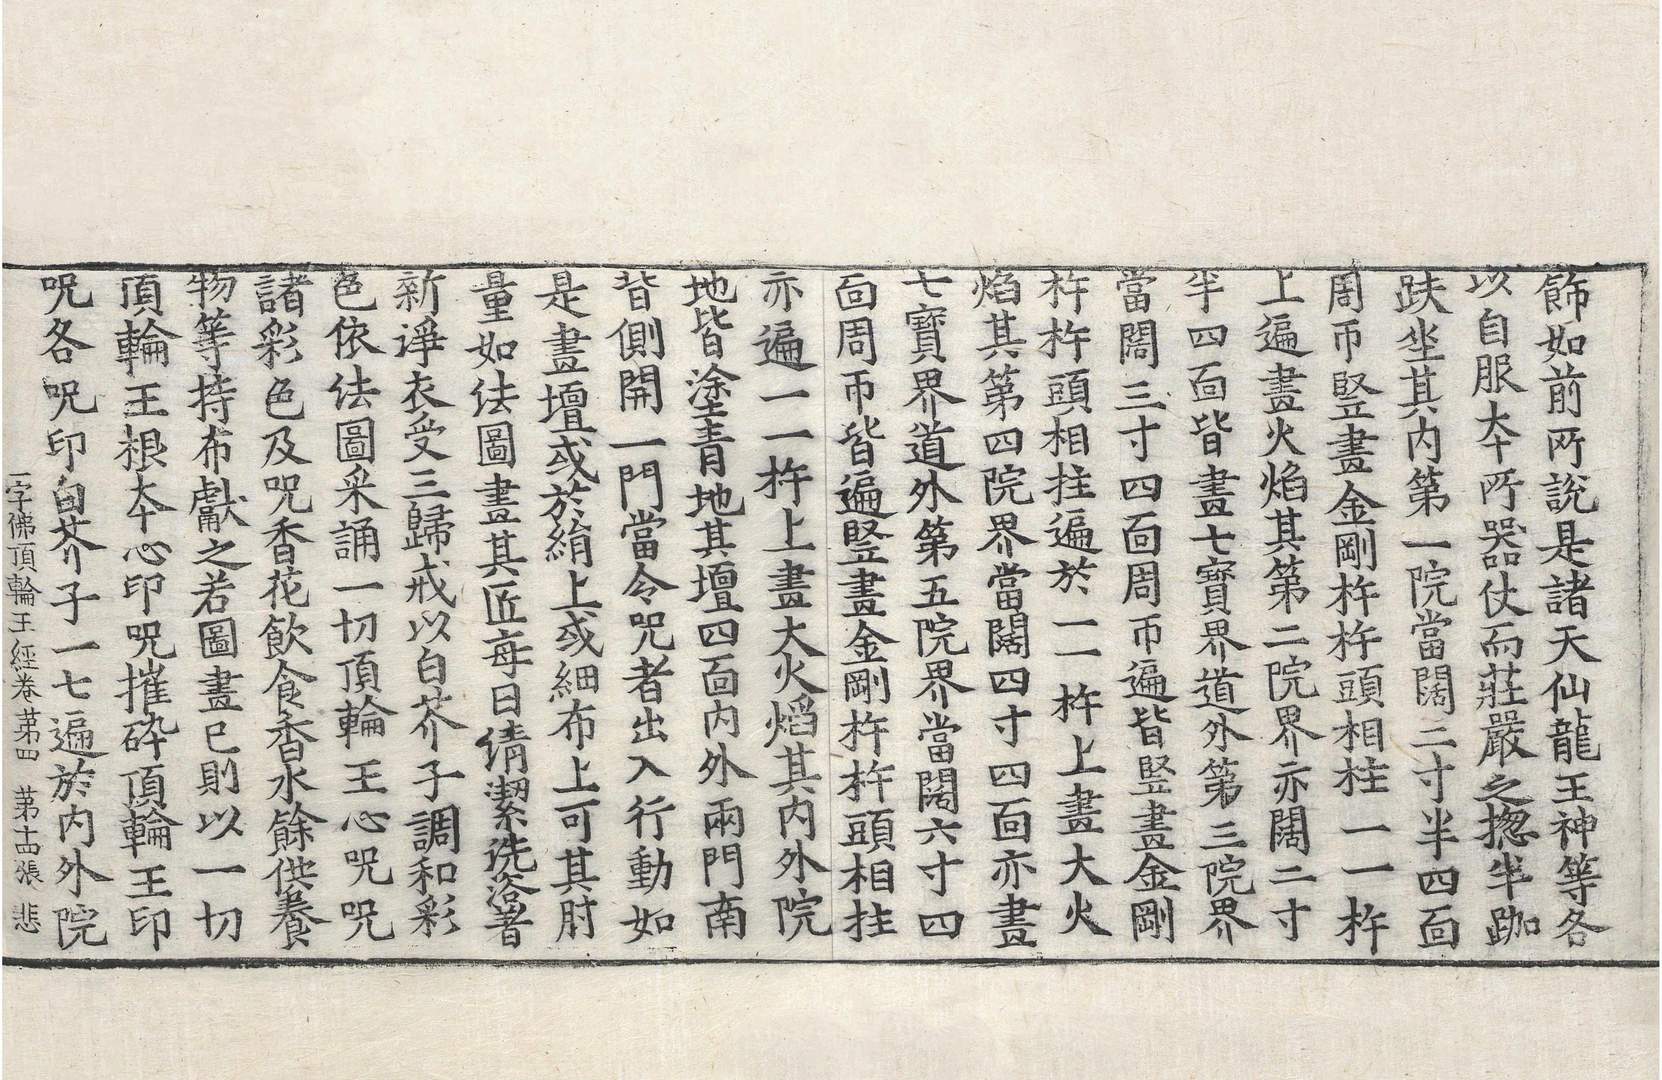 飾如前所說是諸天仙龍王神等各
以自服本所器仗而莊嚴之揔半跏
趺坐其內第一院當闊三寸半四面
周帀竪畫金剛杵杵頭相拄一一杵
上遍畫火焰其第二院界亦闊二寸
半四面皆畫七寶界道外第三院界
當闊三寸四面周帀遍皆竪畫金剛
杵杵頭相拄遍於一一杵上畫大火
焰其第四院界當闊四寸四面亦畫
七寶界道外第五院界當闊六寸四
面周帀皆遍竪畫金剛杵杵頭相拄
亦遍一一杵上畫大火焰其內外院
地皆塗青地其壇四面內外兩門南
背側開一門當令呪者出入行動如
是畫壇或於絹上或細布上可其肘
量如法圖畫其匠每日清潔洗浴著
新淨衣受三歸戒以白芥子調和彩
色依法圖采誦一切頂輪王心呪呪
諸彩色及呪香花飲食香水餘供養
物等持布獻之若圖畫已則以一切
頂輪王根本心印呪摧碎頂輪王印
呪各呪印白芥子一七遍於內外院
一字佛頂輪王經卷第四 第十四張 悲